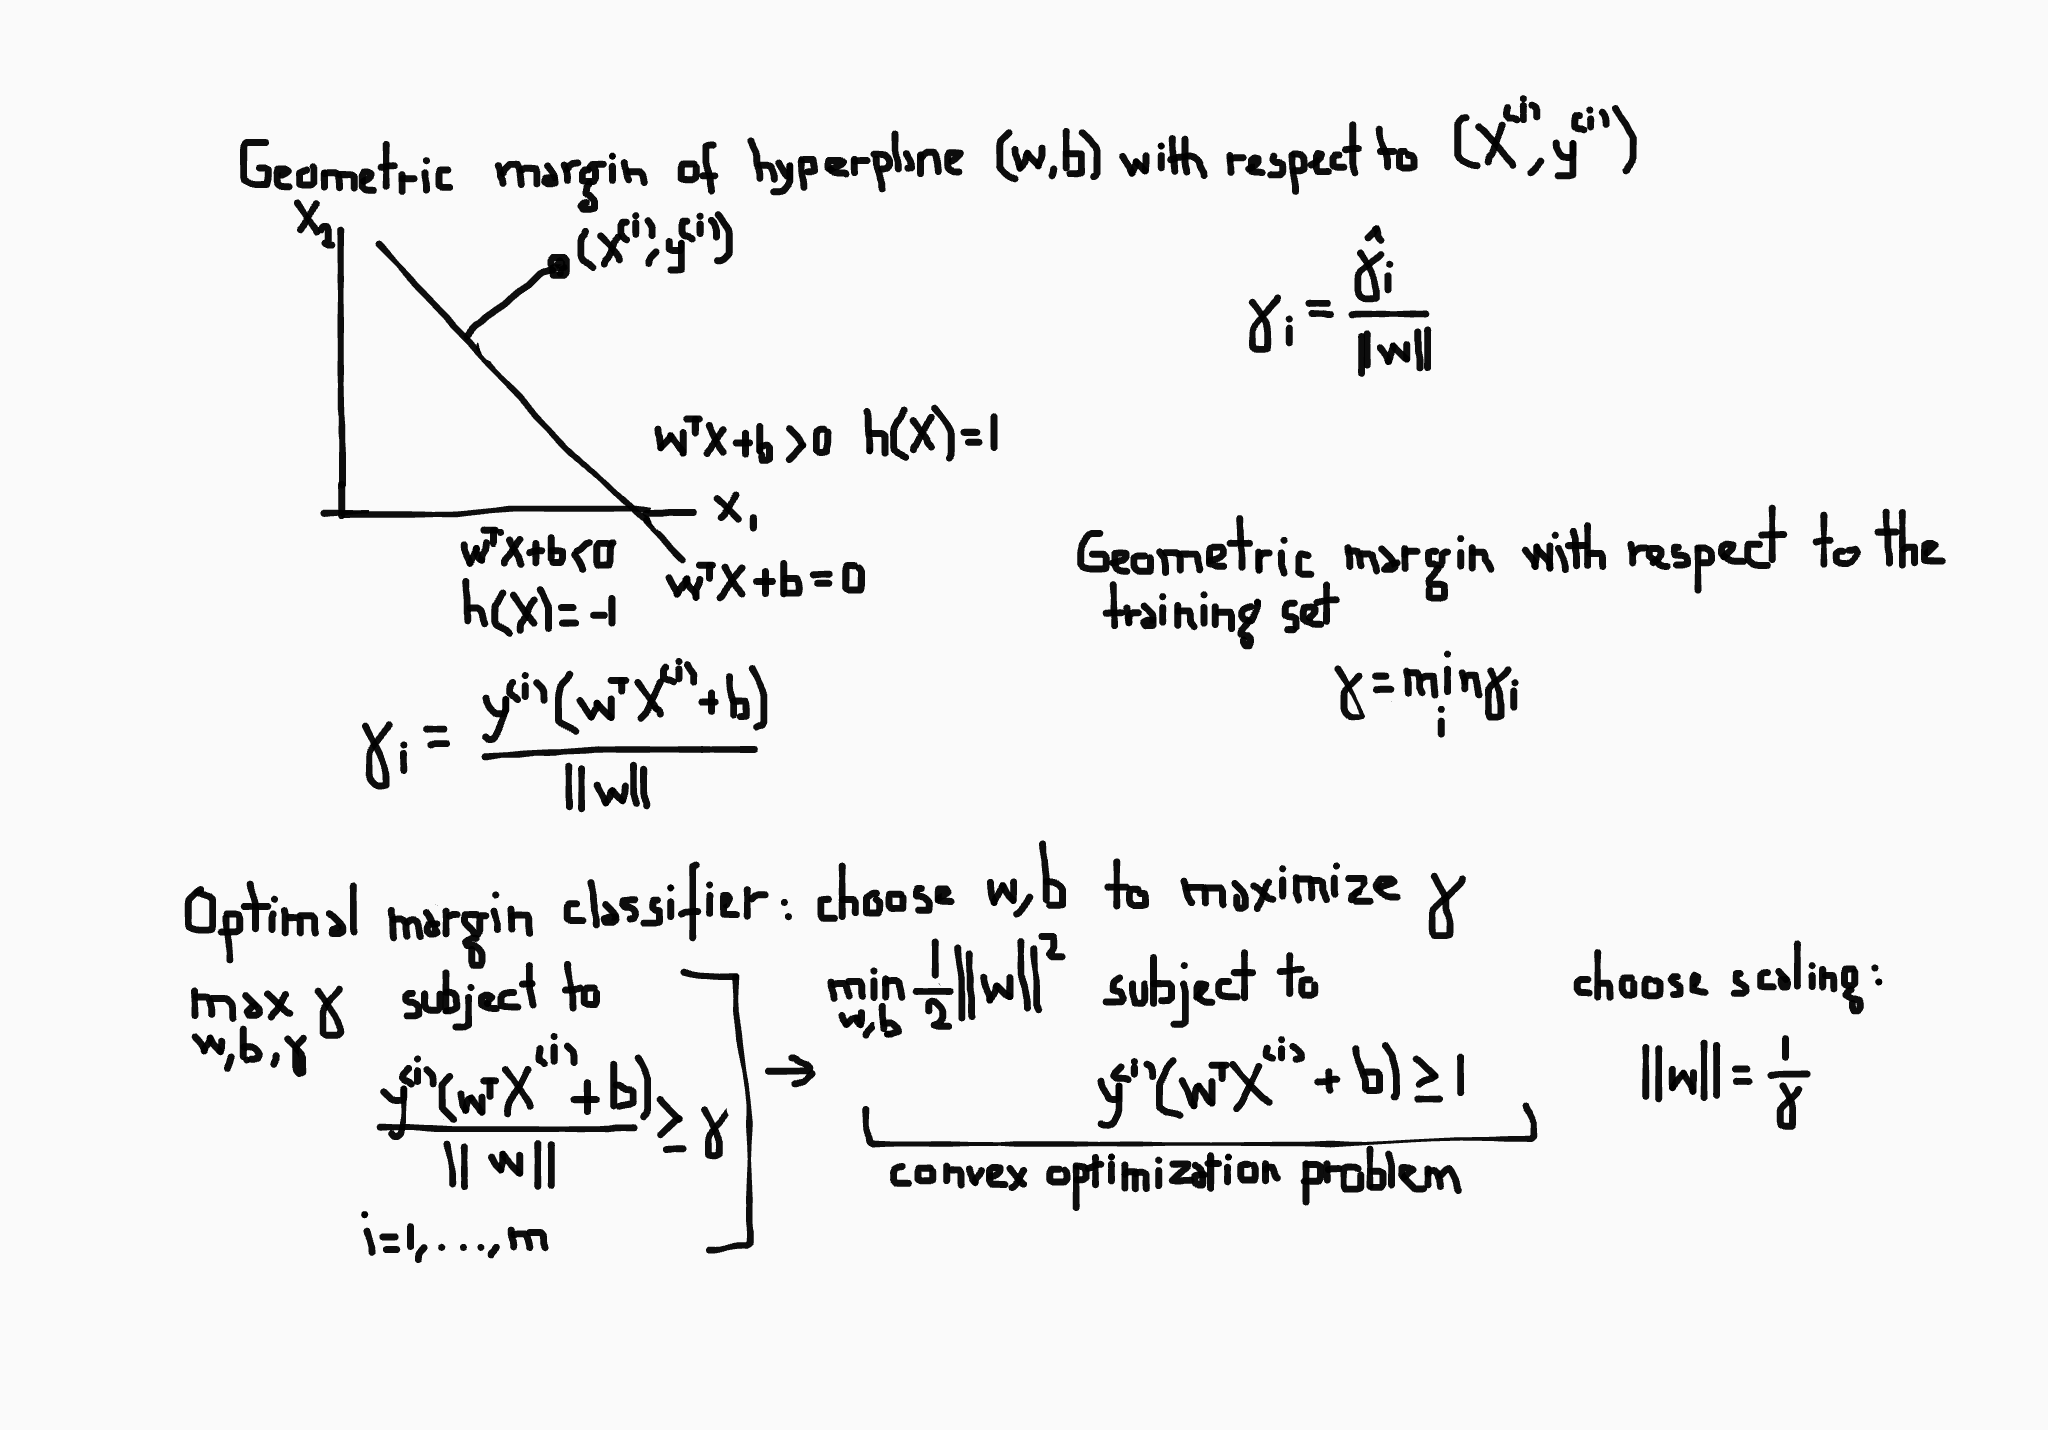 Geometric margin of hyperplane (w,b) with respect to (X⁽ⁱ⁾, y⁽ⁱ⁾)
x₂
(X⁽ⁱ⁾, y⁽ⁱ⁾)
γᵢ = γ̂ᵢ / ||w||
wᵀX+b>0 h(X)=1
x₁
wᵀX+b<0
wᵀX+b=0
h(X)=-1
Geometric margin with respect to the
training set
γ = min γᵢ
i
γᵢ = y⁽ⁱ⁾(wᵀX⁽ⁱ⁾+b) / ||w||
Optimal margin classifier: choose w,b to maximize γ
max γ subject to
w,b,γ
y⁽ⁱ⁾(wᵀX⁽ⁱ⁾+b) / ||w|| ≥ γ
i=1,...,m
→
min 1/2 ||w||² subject to
w,b
y⁽ⁱ⁾(wᵀX⁽ⁱ⁾+b) ≥ 1
convex optimization problem
choose scaling:
||w|| = 1/γ